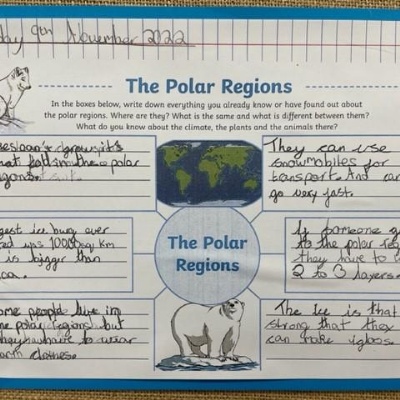 day 9th November 2022
The Polar Regions
In the boxes below, write down everything you already know or have found out about
the polar regions. Where are they? What is the same and what is different between them?
What do you know about the climate, the plants and the animals there?
that fall in the polar
They can use
snowmobiles for
transport. And can
go very fast.
The Polar
Regions
gest ice burg ever
10000sq km
is bigger than
If someone g
to the polar reg
they have to
2 to 3 layers
ome people live in
polar regions but
they have to wear
arm clothese.
The Ice is that
strong that they
can make igloos